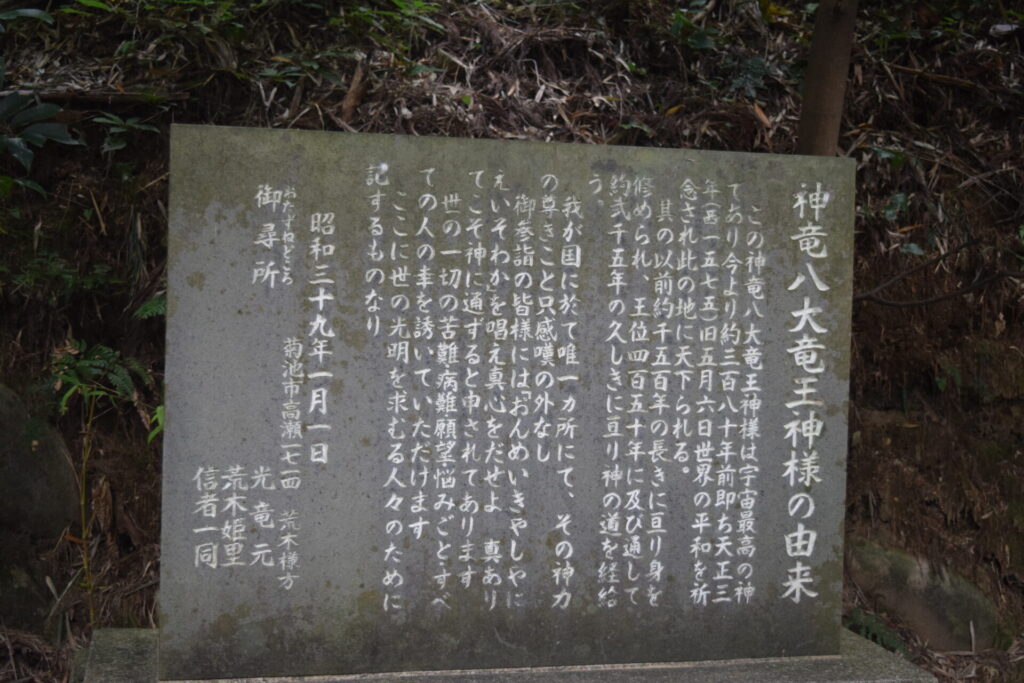 神竜八大竜王神様の由来
この神竜八大竜王神様は宇宙最高の神
であり今より約三百八十年前即ち天正三
年(西一五七五)旧五月六日世界の平和を祈
念され此の地に天下られる。
其の以前約千五百年の長きに亘り身を
修められ、王位四百五十年に及び通して
約弐千五年の久しきに亘り神の道を経給
う。
我が国に於て唯一カ所にて、その神力
の尊きこと只感嘆の外なし
御参詣の皆様には「おんめいきゃしやに
えいそわかを唱え真心をだせよ 真あり
てこそ神に通ずると申されてあります
世の一切の苦難病難願望悩みごとすべ
ての人の幸を誘いていただけます
ここに世の光明を求むる人々のために
記するものなり
昭和三十九年一月一日
おたずねどころ
御尋所 菊池市高瀬一七一四 荒木様方
光竜元
荒木姫里
信者一同